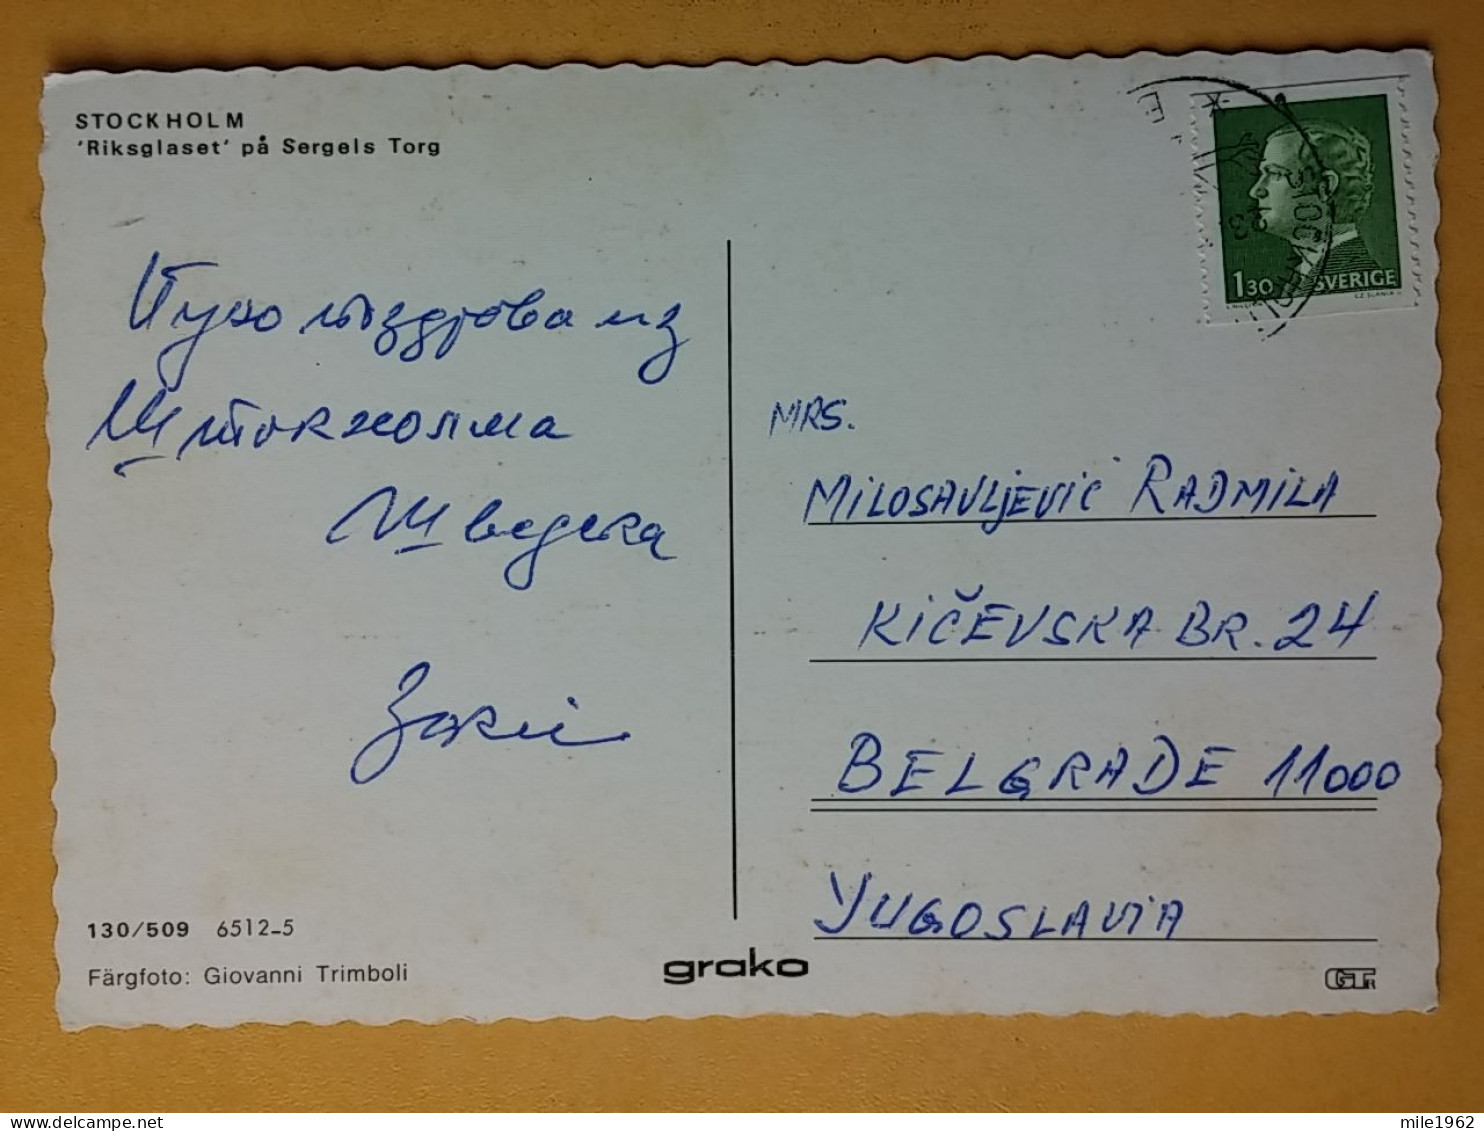 STOCKHOLM
'Riksglaset' på Sergels Torg
1.30 SVERIGE
STOCKHOLM
Пуно поздрова из
Штокхолма
Шведска
MRS.
MILOSAVLJEVIĆ RADMILA
KIČEVSKA BR. 24
BELGRADE 11000
YUGOSLAVIA
130/509 6512-5
Färgfoto: Giovanni Trimboli
grako
mile1962